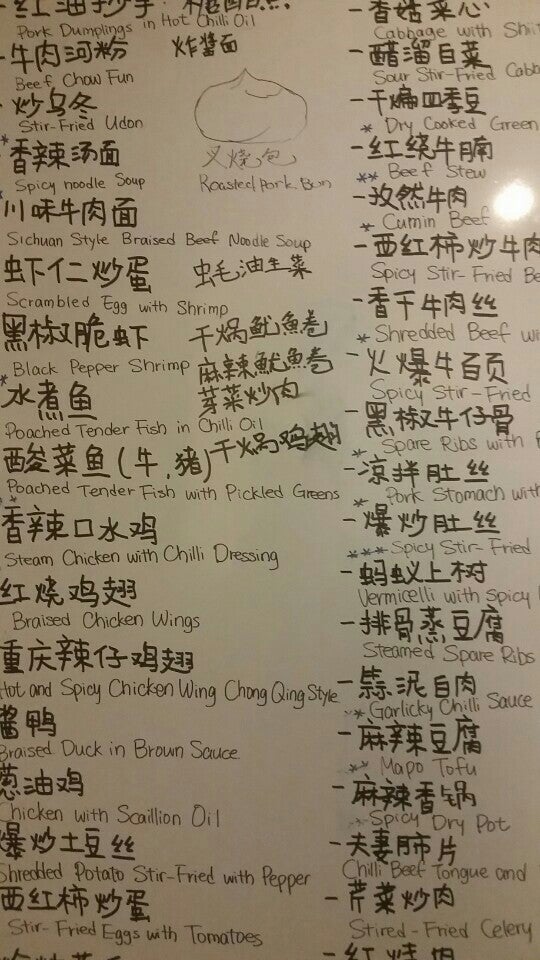 红油抄手
Pork Dumplings in Hot Chilli Oil
牛肉河粉
Beef Chow Fun
炒乌冬
Stir-Fried Udon
*香辣汤面
Spicy noodle Soup
川味牛肉面
Sichuan Style Braised Beef Noodle Soup
虾仁炒蛋
Scrambled Egg with Shrimp
黑椒脆虾
Black Pepper Shrimp
*水煮鱼
Poached Tender Fish in Chilli Oil
酸菜鱼(牛,猪)
Poached Tender Fish with Pickled Greens
香辣口水鸡
Steam Chicken with Chilli Dressing
红烧鸡翅
Braised Chicken Wings
重庆辣仔鸡翅
Hot and Spicy Chicken Wing Chong Qing Style
酱鸭
Braised Duck in Brown Sauce
葱油鸡
Chicken with Scaillion Oil
爆炒土豆丝
Shredded Potato Stir-Fried with Pepper
西红柿炒蛋
Stir-Fried Eggs with Tomatoes
炸醬面
叉烧包
Roasted Pork Bun
蚝油生菜
干煸鱿魚卷
麻辣鱿魚卷
芽菜炒肉
干锅鸡翅
-香菇菜心
Cabbage with
-醋溜白菜
Sour Stir-Fried
-干煸四季豆
* Dry Cooked Green
-红烧牛腩
** Beef Stew
-孜然牛肉
* Cumin Beef
-西红柿炒牛肉
Spicy Stir-Fried
-香干牛肉丝
* Shredded Beef
-火爆牛百页
Spicy Stir-Fried
-黑椒牛仔骨
* Spare Ribs with
-凉拌肚丝
* Pork Stomach with
-爆炒肚丝
*** Spicy Stir-Fried
-蚂蚁上树
Vermicelli with Spicy
-排骨蒸豆腐
Steamed Spare Ribs
-蒜泥白肉
* Garlicky Chilli Sauce
-麻辣豆腐
** Mapo Tofu
-麻辣香锅
Spicy Dry Pot
-夫妻肺片
Chilli Beef Tongue and
-芹菜炒肉
Stired-Fried Celery